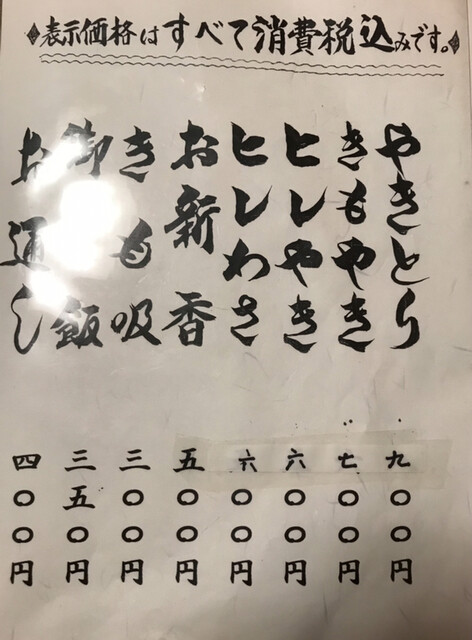 表示価格はすべて消費税込みです。
やきとり 九〇〇円
きもやき 七〇〇円
ヒレやき 六〇〇円
ヒレわさ 六〇〇円
お新香 五〇〇円
きも吸 三〇〇円
御飯 三五〇円
お通し 四〇〇円